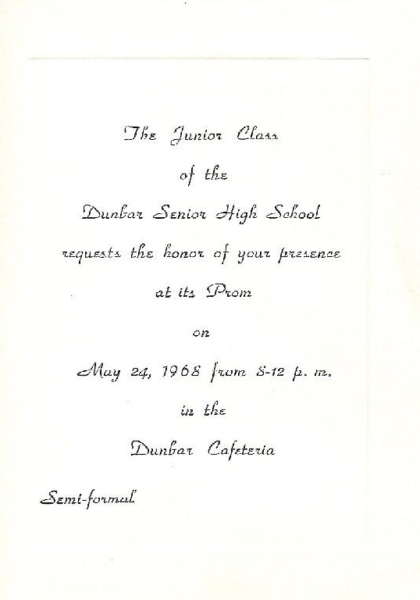 The Junior Class
of the
Dunbar Senior High School
requests the honor of your presence
at its Prom
on
May 24, 1968 from 8-12 p. m.
in the
Dunbar Cafeteria
Semi-formal